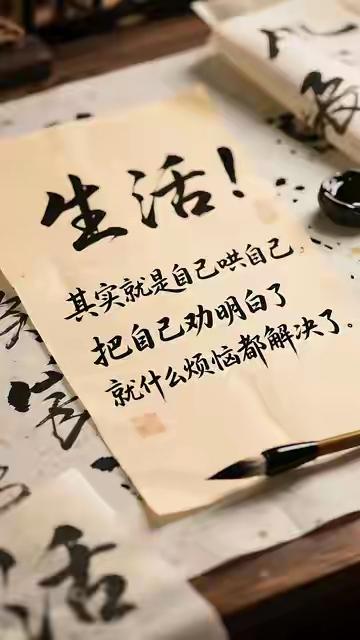 生活！
其实就是自己哄自己。
把自己劝明白了
就什么烦恼都解决了。
活